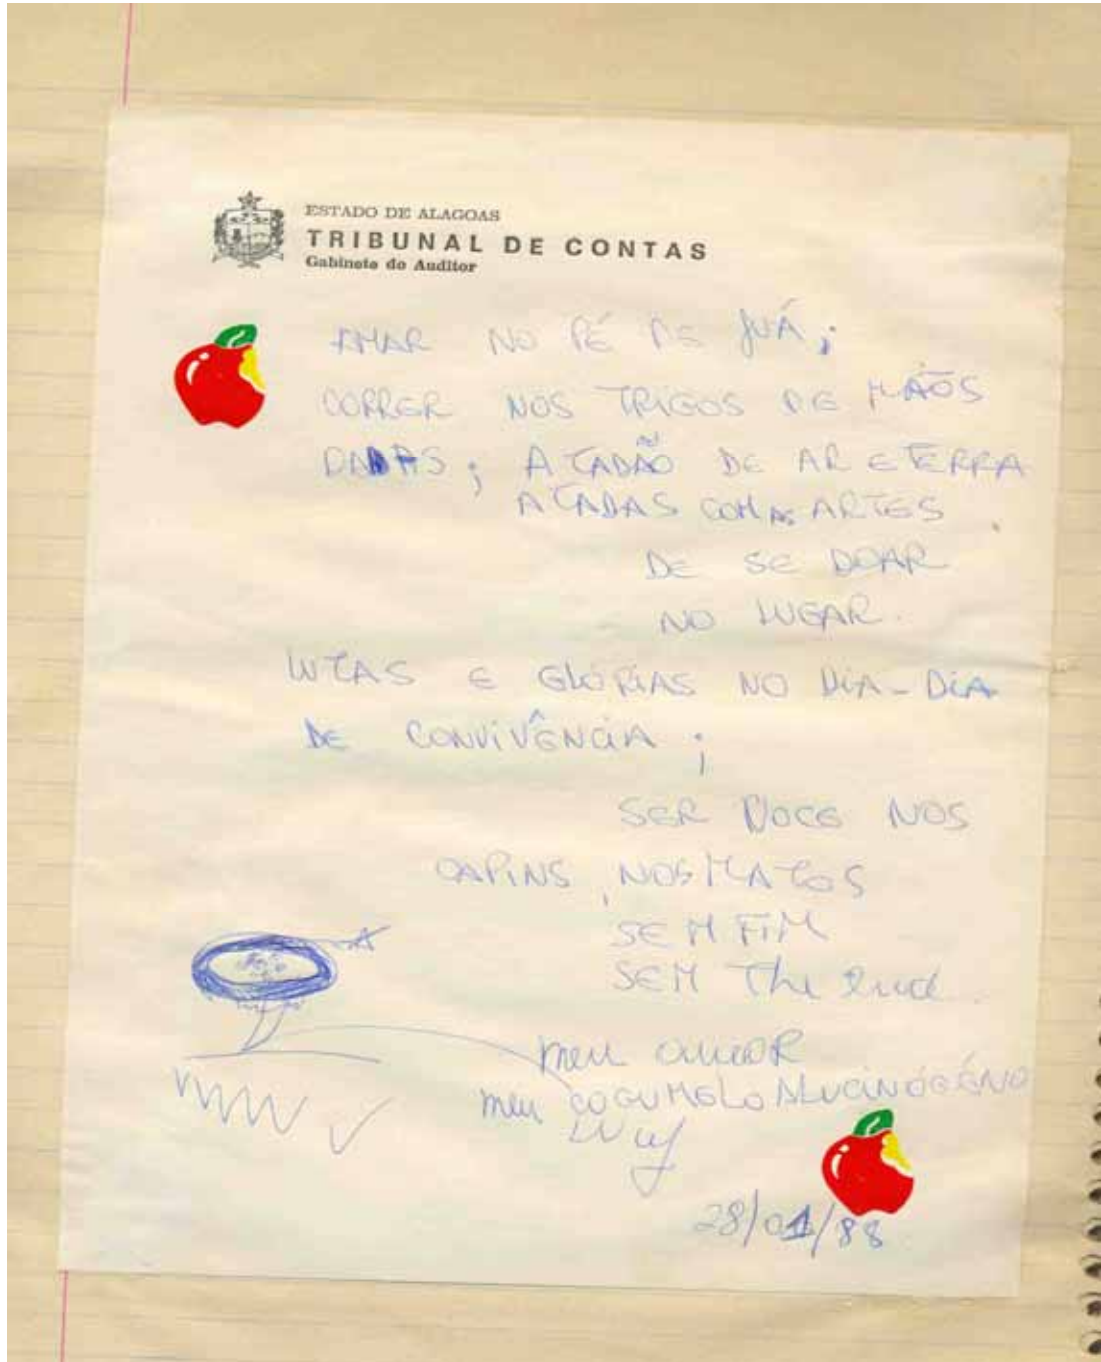 ESTADO DE ALAGOAS
TRIBUNAL DE CONTAS
Gabinete do Auditor
AMAR NO PÉ DE JUÁ;
CORRER NOS TRIGOS DE MÃOS
DADAS; ATADÃO DE AR E TERRA
ATADAS COM AS ARTES
DE SE DOAR
NO LUGAR.
LUTAS E GLÓRIAS NO DIA-DIA
DE CONVIVÊNCIA;
SER DOCE NOS
CAPINS, NOS MATOS
SEM FIM
SEM The End.
meu amor
meu COGUMELO ALUCINÓGÉNO
28/01/88